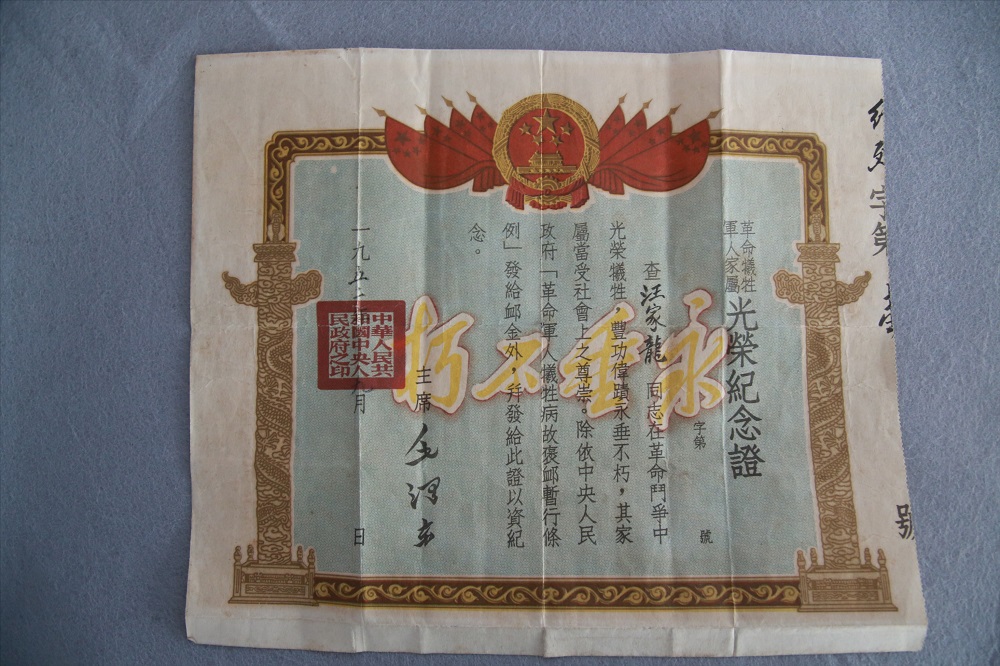 字第
號
革命犧牲
軍人家屬
光榮紀念證
字第 號
查汪家龍同志在革命鬥爭中
光榮犧牲，豐功偉蹟永垂不朽，其家
屬當受社會上之尊崇。除依中央人民
政府「革命軍人犧牲病故褒卹暫行條
例」發給卹金外，幷發給此證以資紀
念。
永垂不朽
主席 毛澤東
一九五二年 九月 日
中華人民共
和國中央人
民政府之印